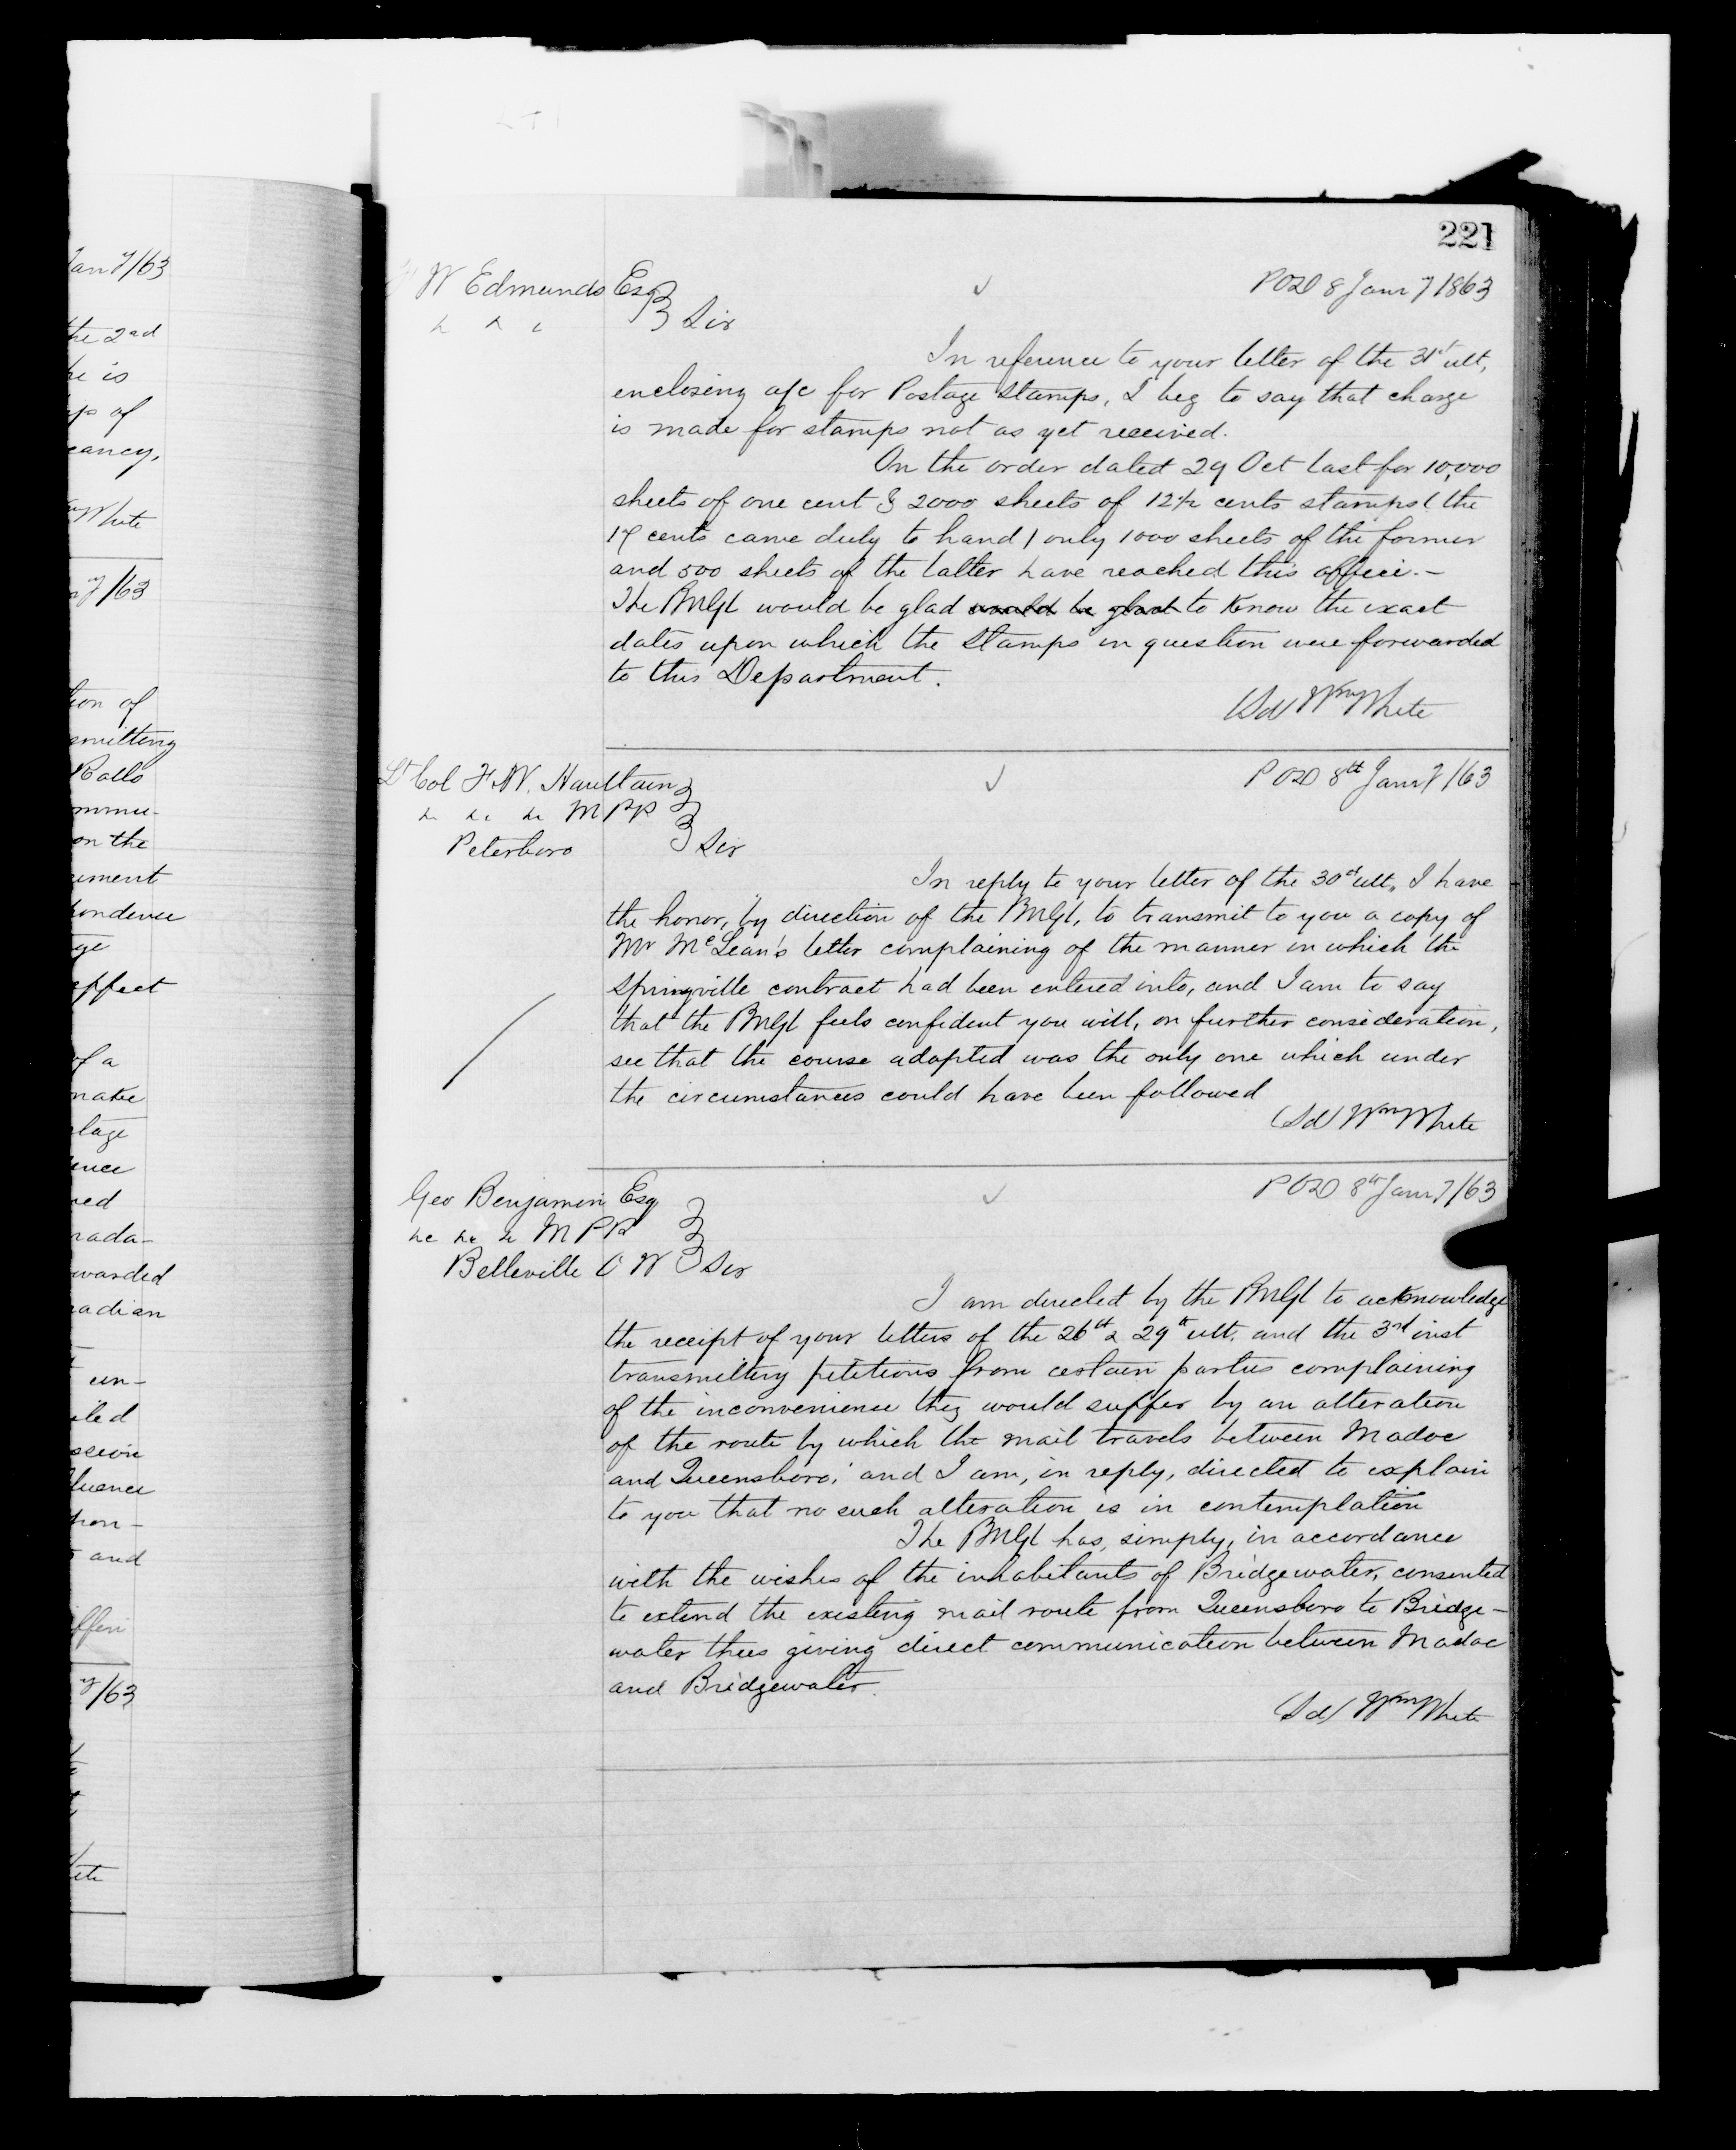 221
W Edmunds Esq
POD 8 Jany 1863
Sir
In reference to your letter of the 31st ult,
enclosing a/c for Postage Stamps, I beg to say that charge
is made for stamps not as yet received.
On the order dated 29 Oct last for 10,000
sheets of one cent & 2000 sheets of 12½ cents stamps (the
17 cents came duly to hand) only 1000 sheets of the former
and 500 sheets of the latter have reached this office.-
The PMGl would be glad would be glad to know the exact
dates upon which the Stamps in question were forwarded
to this Department.
(Sd) Wm White
Lt Col F.W. Haultain
&c &c &c M P P
Peterboro
POD 8th Jany /63
Sir
In reply to your letter of the 30st ult, I have
the honor, by direction of the PMGl, to transmit to you a copy of
Mr McLean's letter complaining of the manner in which the
Springville contract had been entered into, and I am to say
that the PMGl feels confident you will, on further consideration,
see that the course adopted was the only one which under
the circumstances could have been followed
(Sd) Wm White
Geo Benjamin Esq
&c &c &c M P P
Belleville C W
POD 8th Jany /63
Sir
I am directed by the PMGl to acknowledge
the receipt of your letters of the 26th & 29th ult. and the 3rd inst
transmitting petitions from certain parties complaining
of the inconvenience they would suffer by an alteration
of the route by which the mail travels between Madoc
and Queensboro; and I am, in reply, directed to explain
to you that no such alteration is in contemplation
The PMGl has, simply, in accordance
with the wishes of the inhabitants of Bridgewater, consented
to extend the existing mail route from Queensboro to Bridge-
water thus giving direct communication between Madoc
and Bridgewater.
(Sd) Wm White